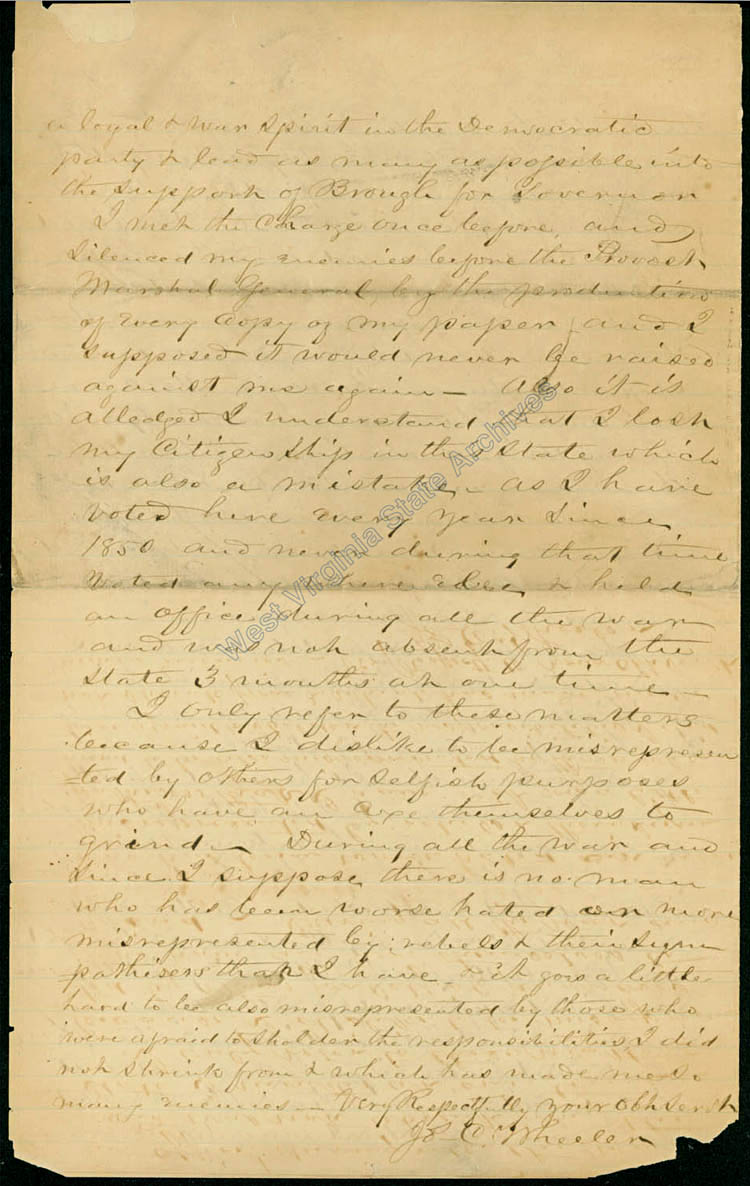 a loyal & War Spirit in the Democratic
party & lead as many as possible into
the support of Brough for Governor
I met the Charge once before, and
Silenced my enemies before the Provost
Marshal General, by the production
of every Copy of my paper, and I
supposed it would never be raised
against me again – Also it is
alledged I understand that I lost
my Citizenship in the State which
is also a mistake – as I have
voted here every year since
1850 and never during that time
voted any where else, & held
an office during all the war
and was not absent from the
State 3 months at one time –
I only refer to these matters
because I dislike to be misrepresen
-ted by others for selfish purposes
who have an axe themselves to
grind – During all the war and
since I suppose there is no man
who has been worse hated or more
misrepresented by rebels & their sym
pathisers than I have – & it goes a little
hard to be also misrepresented by those who
were afraid to sholder the responsibilities I did
not shrink from & which has made me so
many enemies – Very Respectfully your obt servt
Wheeler
West Virginia State Archives